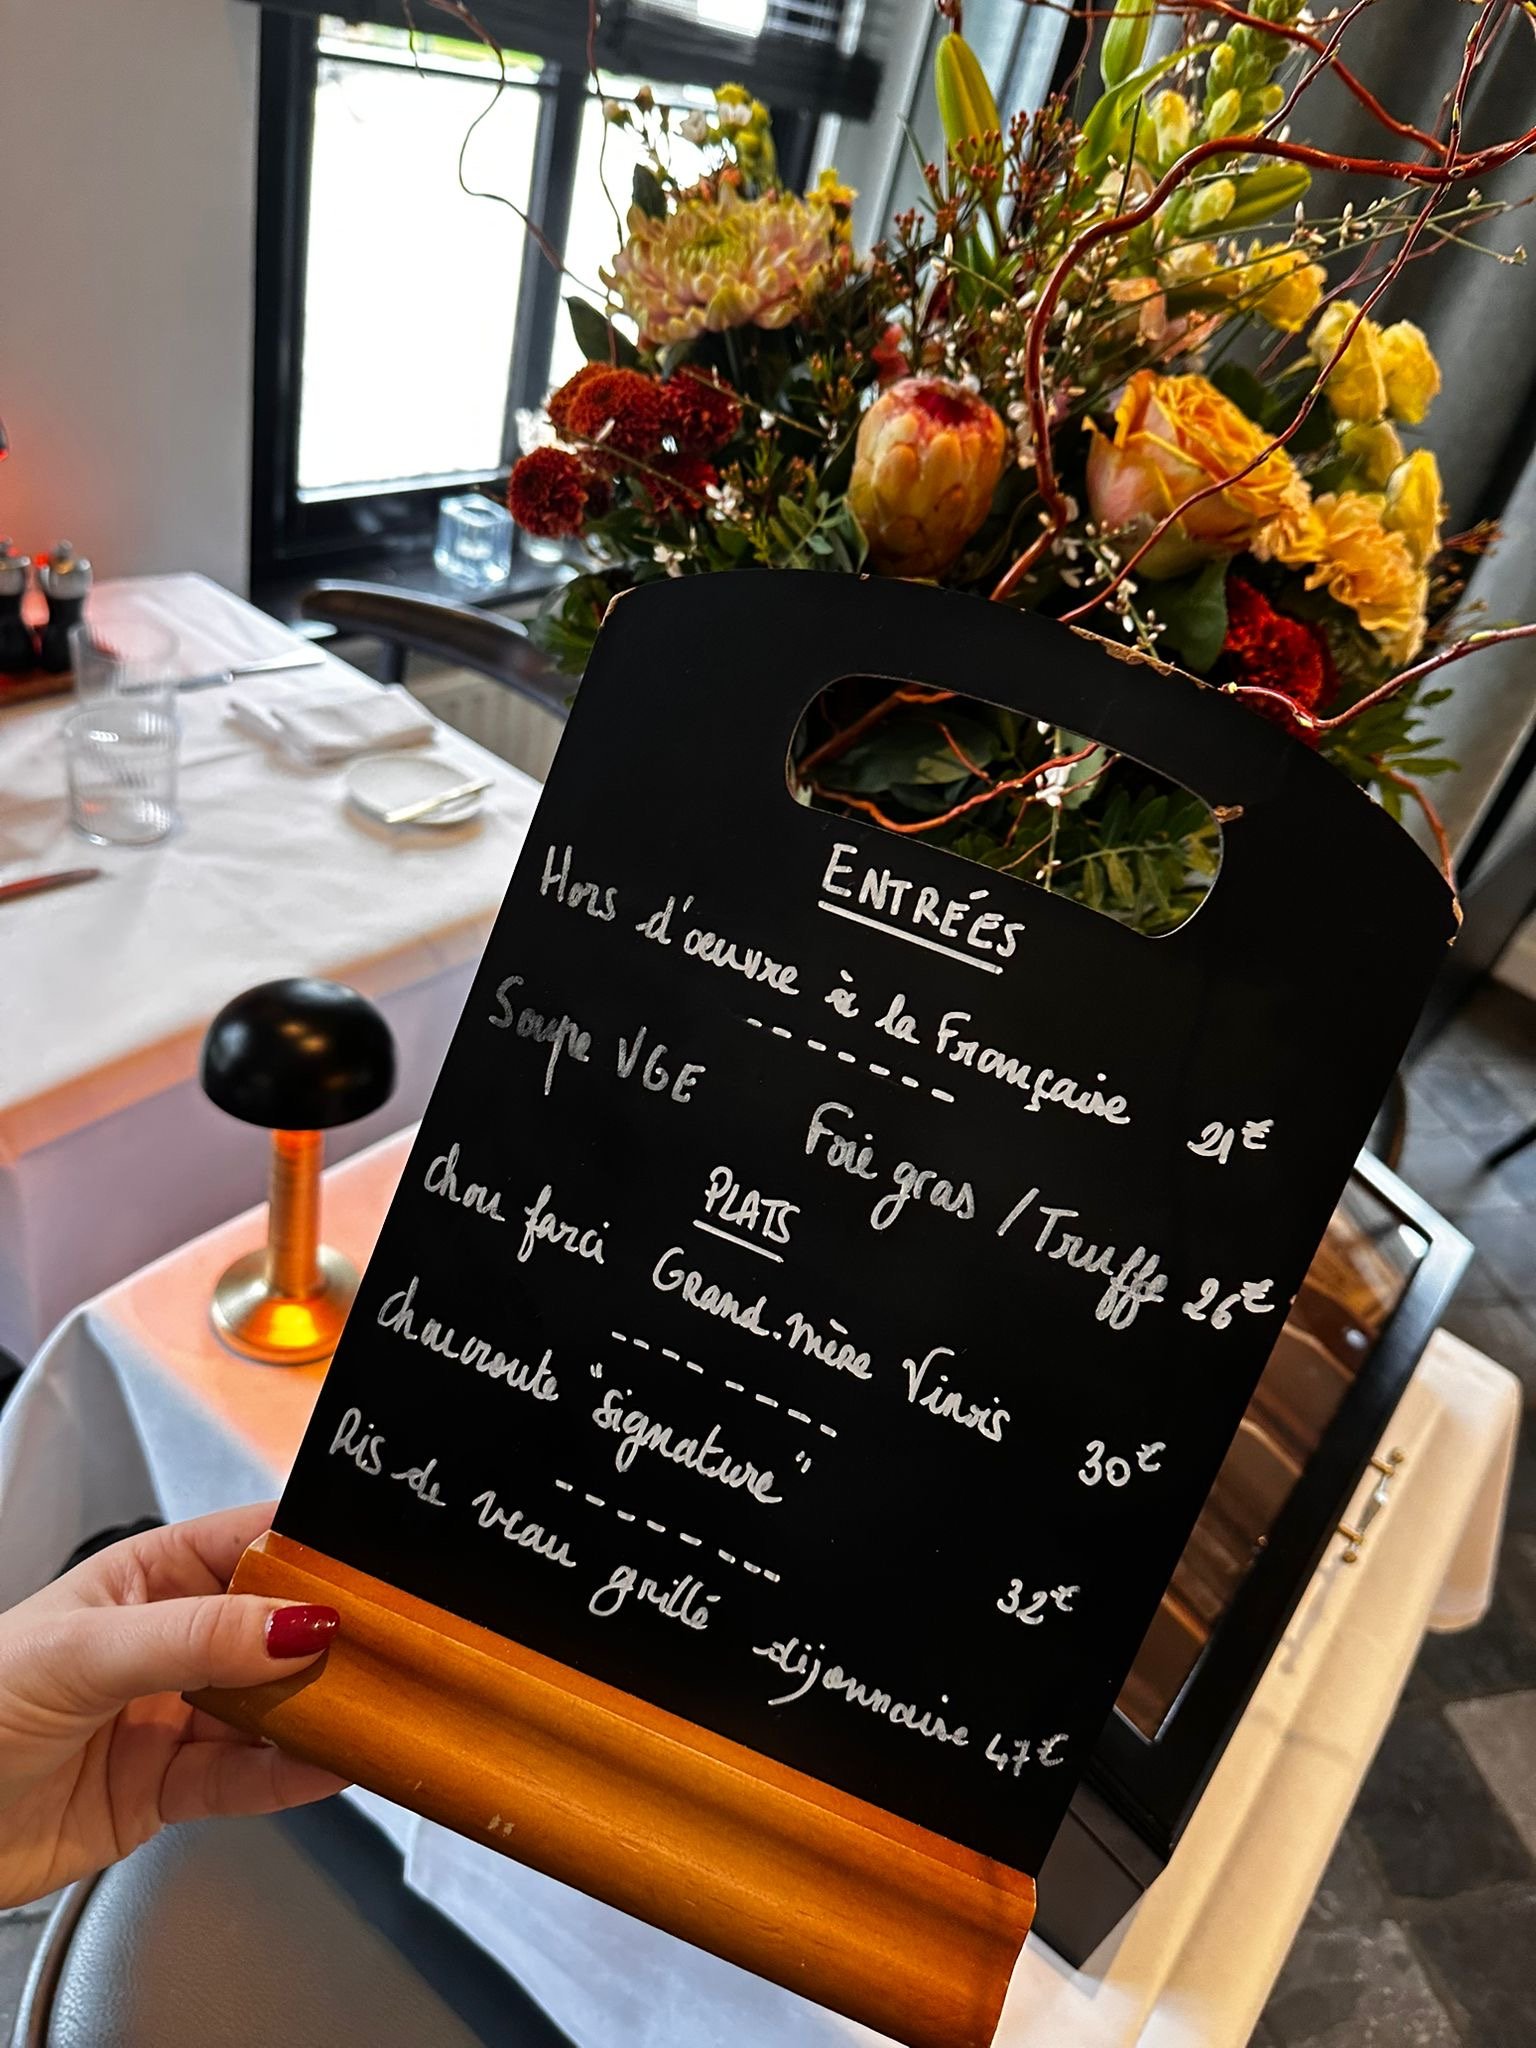 ENTRÉES
Hors d'œuvre à la Française 21€
Soupe VGE Foie gras / Truffe 26€
PLATS
chou farci Grand-mère Vinois 30€
choucroute "signature" 32€
Ris de veau grillé dijonnaise 47€